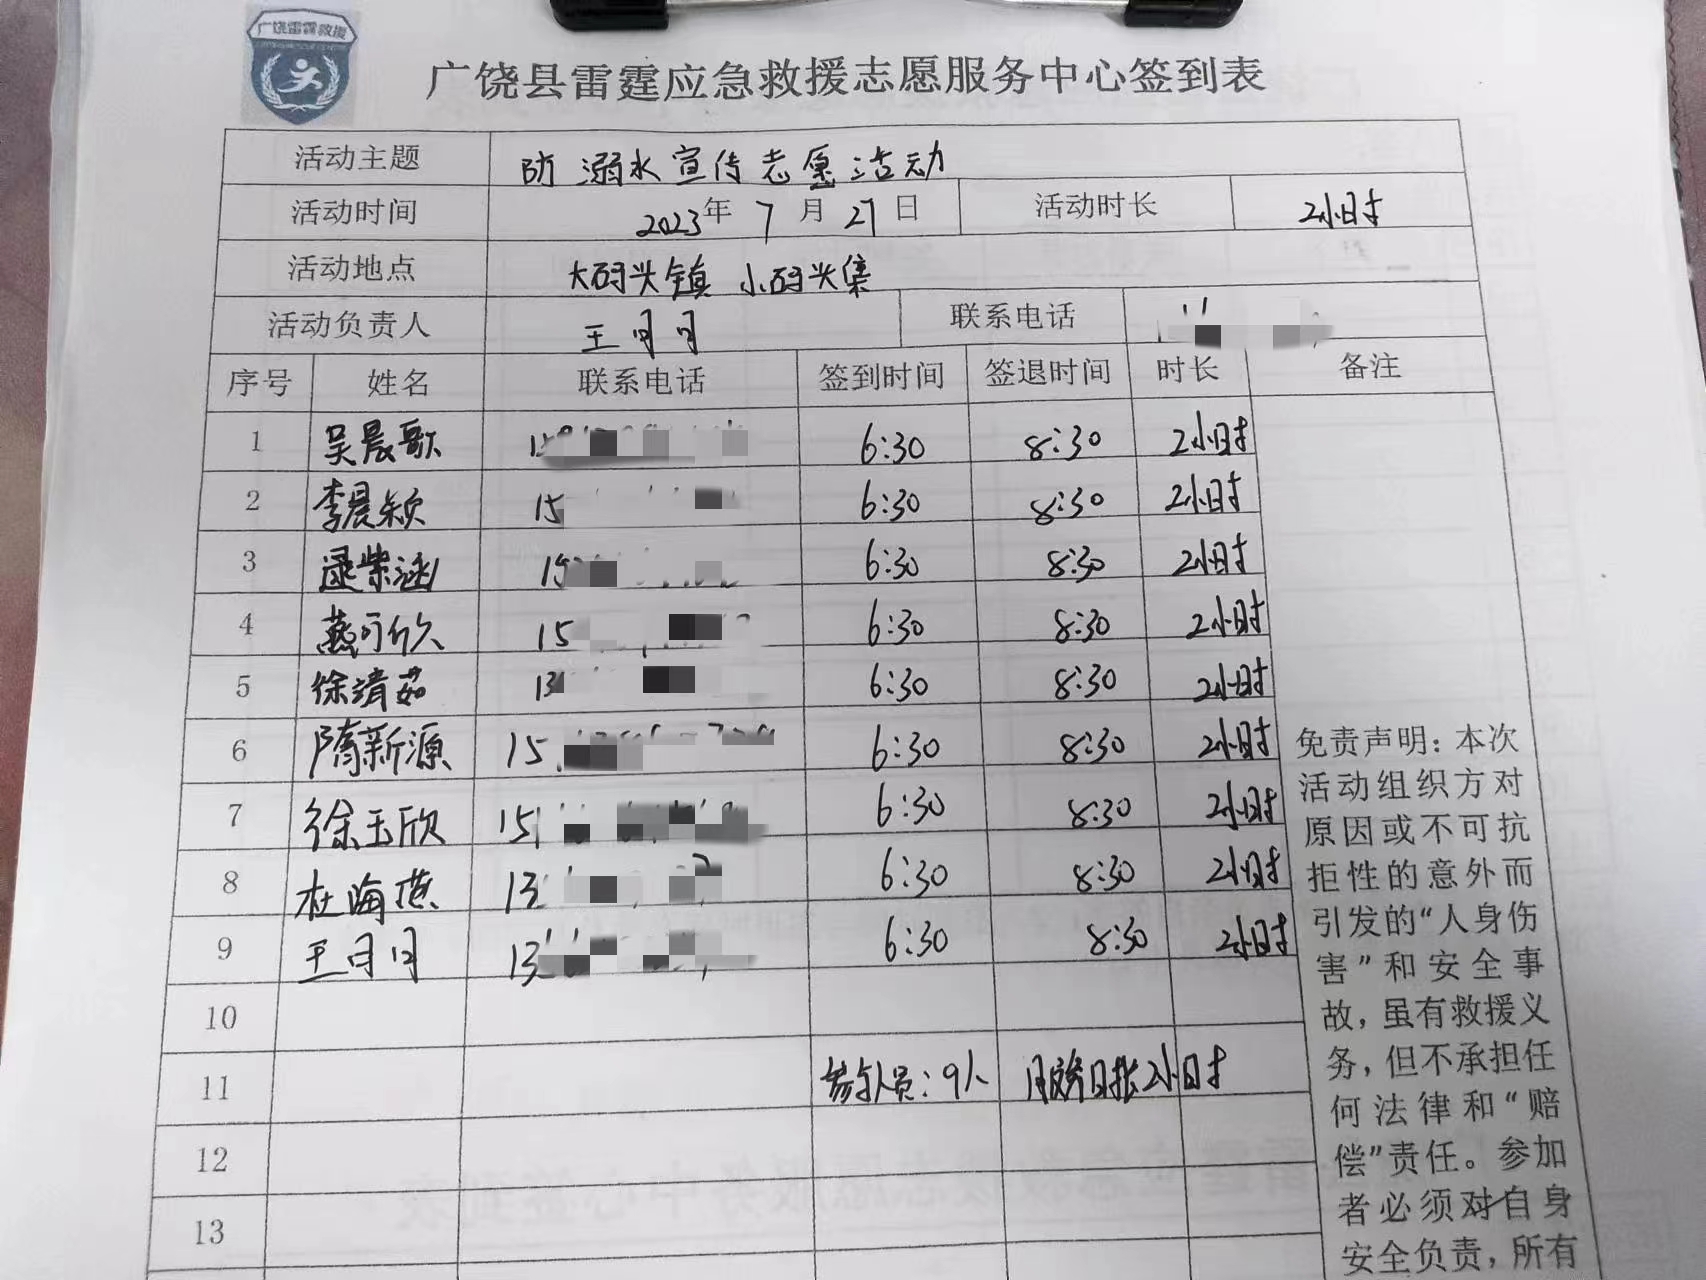 广饶雷霆救援
广饶县雷霆应急救援志愿服务中心签到表
活动主题 防溺水宣传志愿活动
活动时间 2023年7月27日 活动时长 2小时
活动地点 大码头镇 小码头集
活动负责人 王月月 联系电话
序号 姓名 联系电话 签到时间 签退时间 时长 备注
1 吴晨歌 6:30 8:30 2小时
2 李晨颖 15 6:30 8:30 2小时
3 逯紫涵 6:30 8:30 2小时
4 燕可欣 15 6:30 8:30 2小时
5 徐靖茹 13 6:30 8:30 2小时
6 隋新源 15 6:30 8:30 2小时
7 徐玉欣 15 6:30 8:30 2小时
8 杜海燕 13 6:30 8:30 2小时
9 王月月 13 6:30 8:30 2小时
10
11 参与人员：9人 服务时长2小时
12
13
免责声明：本次
活动组织方对
原因或不可抗
拒性的意外而
引发的“人身伤
害”和安全事
故，虽有救援义
务，但不承担任
何法律和“赔
偿”责任。参加
者必须对自身
安全负责，所有